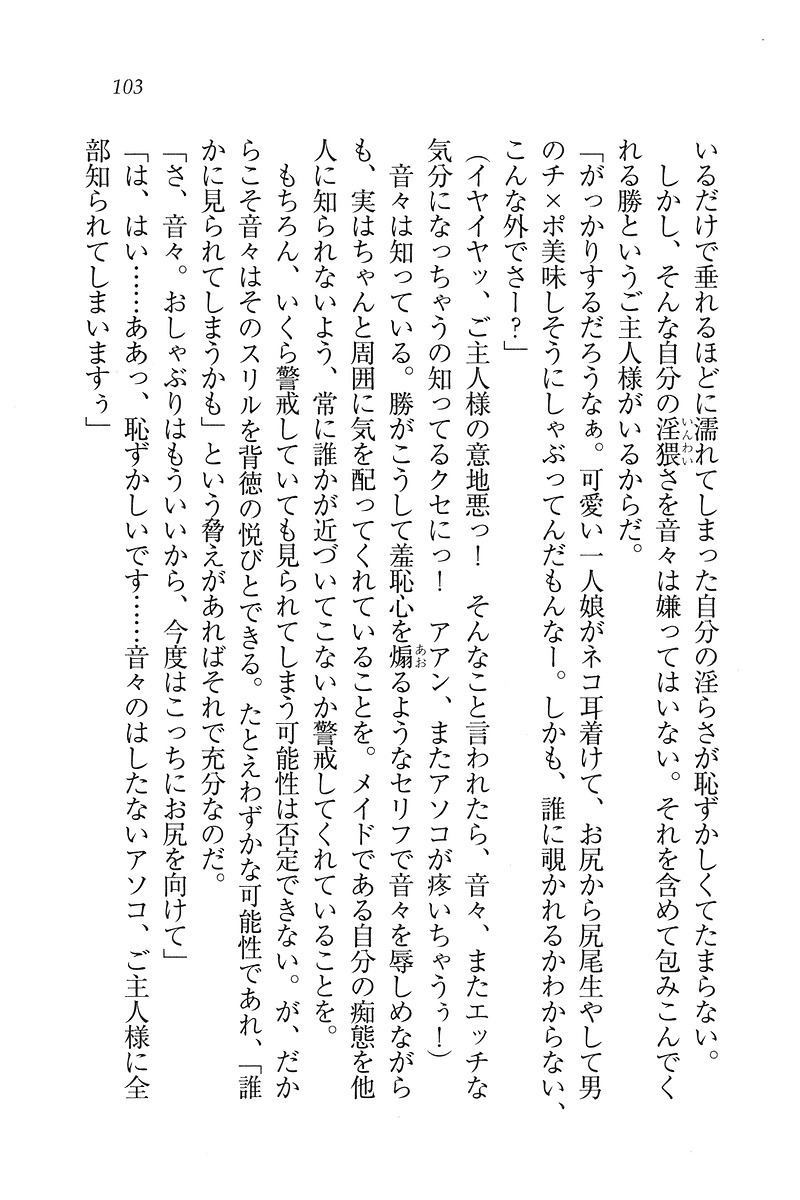 103
いるだけで垂れるほどに濡れてしまった自分の淫らさが恥ずかしくてたまらない。
しかし、そんな自分の淫猥さを音々は嫌ってはいない。それを含めて包みこんでく
れる勝というご主人様がいるからだ。
「がっかりするだろうなぁ。可愛い一人娘がネコ耳着けて、お尻から尻尾生やして男
のチ×ポ美味しそうにしゃぶってんだもんなー。しかも、誰に覗かれるかわからない、
こんな外でさー?」
(イヤイヤッ、ご主人様の意地悪っ! そんなこと言われたら、音々、またエッチな
気分になっちゃうの知ってるクセにっ! アアン、またアソコが疼いちゃうぅ!)
音々は知っている。勝がこうして羞恥心を煽るようなセリフで音々を辱しめながら
も、実はちゃんと周囲に気を配ってくれていることを。メイドである自分の痴態を他
人に知られないよう、常に誰かが近づいてこないか警戒してくれていることを。
もちろん、いくら警戒していても見られてしまう可能性は否定できない。が、だか
らこそ音々はそのスリルを背徳の悦びとできる。たとえわずかな可能性であれ、「誰
かに見られてしまうかも」という脅えがあればそれで充分なのだ。
「さ、音々。おしゃぶりはもういいから、今度はこっちにお尻を向けて」
「は、はい……ああっ、恥ずかしいです……音々のはしたないアソコ、ご主人様に全
部知られてしまいますぅ」